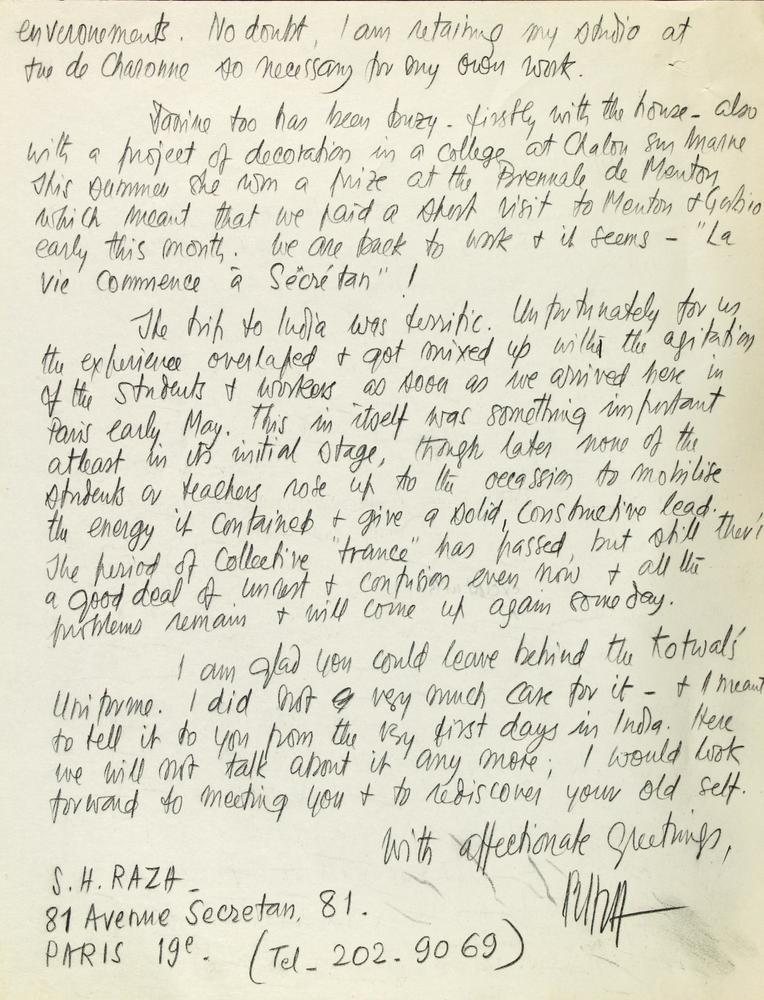 enveronements. No doubt, I am retaining my studio at
rue de Charonne so necessary for my own work.
Janine too has been buzy - firstly with the house - also
with a project of decoration in a college at Chalon sur Marne
This summer she won a prize at the Biennale de Menton,
which meant that we paid a short visit to Menton & Gorbio
early this month. We are back to work & it seems - "La
vie commence à Sécrétan" !
The trip to India was terrific. Unfortunately for us
the experience overlaped & got mixed up with the agitation
of the students & workers as soon as we arrived here in
Paris early May. This in itself was something important
atleast in its initial stage, though later none of the
students or teachers rose up to the occassion to mobilise
the energy it contained & give a solid, constructive lead.
The period of collective "trance" has passed, but still there's
a good deal of unrest & confusion even now & all the
problems remain & will come up again some day.
I am glad you could leave behind the Kotwal's
Uniforme. I did not very much care for it - & I meant
to tell it to you from the very first days in India. Here
we will not talk about it any more; I would look
forward to meeting you & to rediscover your old self.
With affectionate greetings,
RAZA
S.H. RAZA -
81 Avenue Secretan, 81.
PARIS 19e. (Tel - 202.90 69)